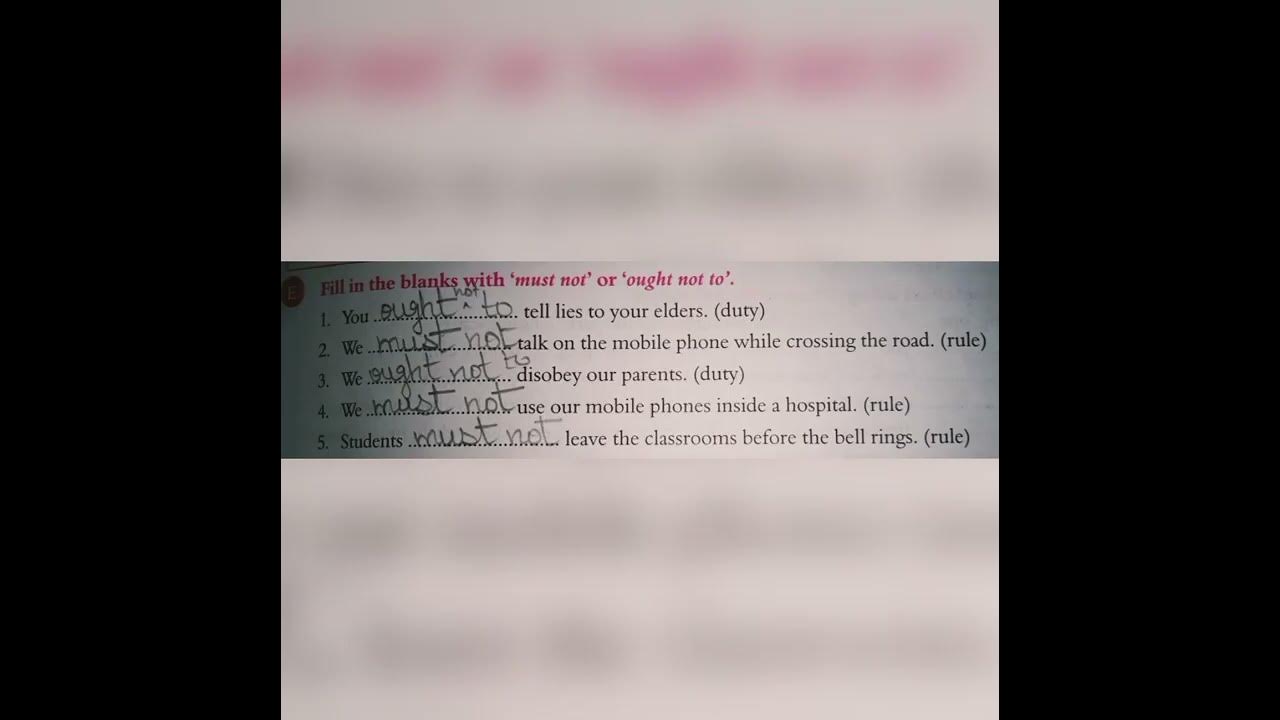 E Fill in the blanks with ‘must not’ or ‘ought not to’.
1. You ought not to tell lies to your elders. (duty)
2. We must not talk on the mobile phone while crossing the road. (rule)
3. We ought not to disobey our parents. (duty)
4. We must not use our mobile phones inside a hospital. (rule)
5. Students must not leave the classrooms before the bell rings. (rule)